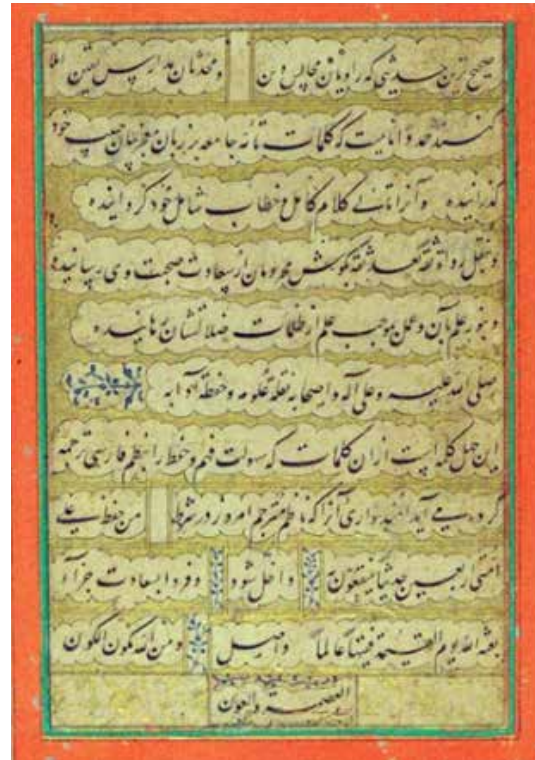 صحیح ترین حدیثی که راویان مجالس دین و محدثان مدارس یقین املا
کنند حمد داناییست که کلمات تامه جامعه بر زبان معجز بیان حبیب خود
گذرانیده و آنرا تالی کلام کامل و خطاب شامل خود گردانیده
و بنقل رواة ثقة بعد ثقة بگوش محرومان از سعادت صحبت وی رسانیده
و بنور علم بآن و عمل بموجب علم از ظلمات ضلالتشان رهانیده
صلی الله علیه و علی آله و اصحابه نقلة علومه و حفظة آدابه
این چهل کلمه ایست ازان کلمات که سهولت فهم و حفظ را بنظم فارسی ترجمه
کرده می آید امیدواری آنرا که ناظم مترجم امروز در شرط من حفظ علی
امتی اربعین حدیثا ینتفعون به داخل شود و فردا بسعادت جزاء
بعثه الله یوم القیمة فقیها عالما واصل و من الله مکون الکون
العصمة والعون